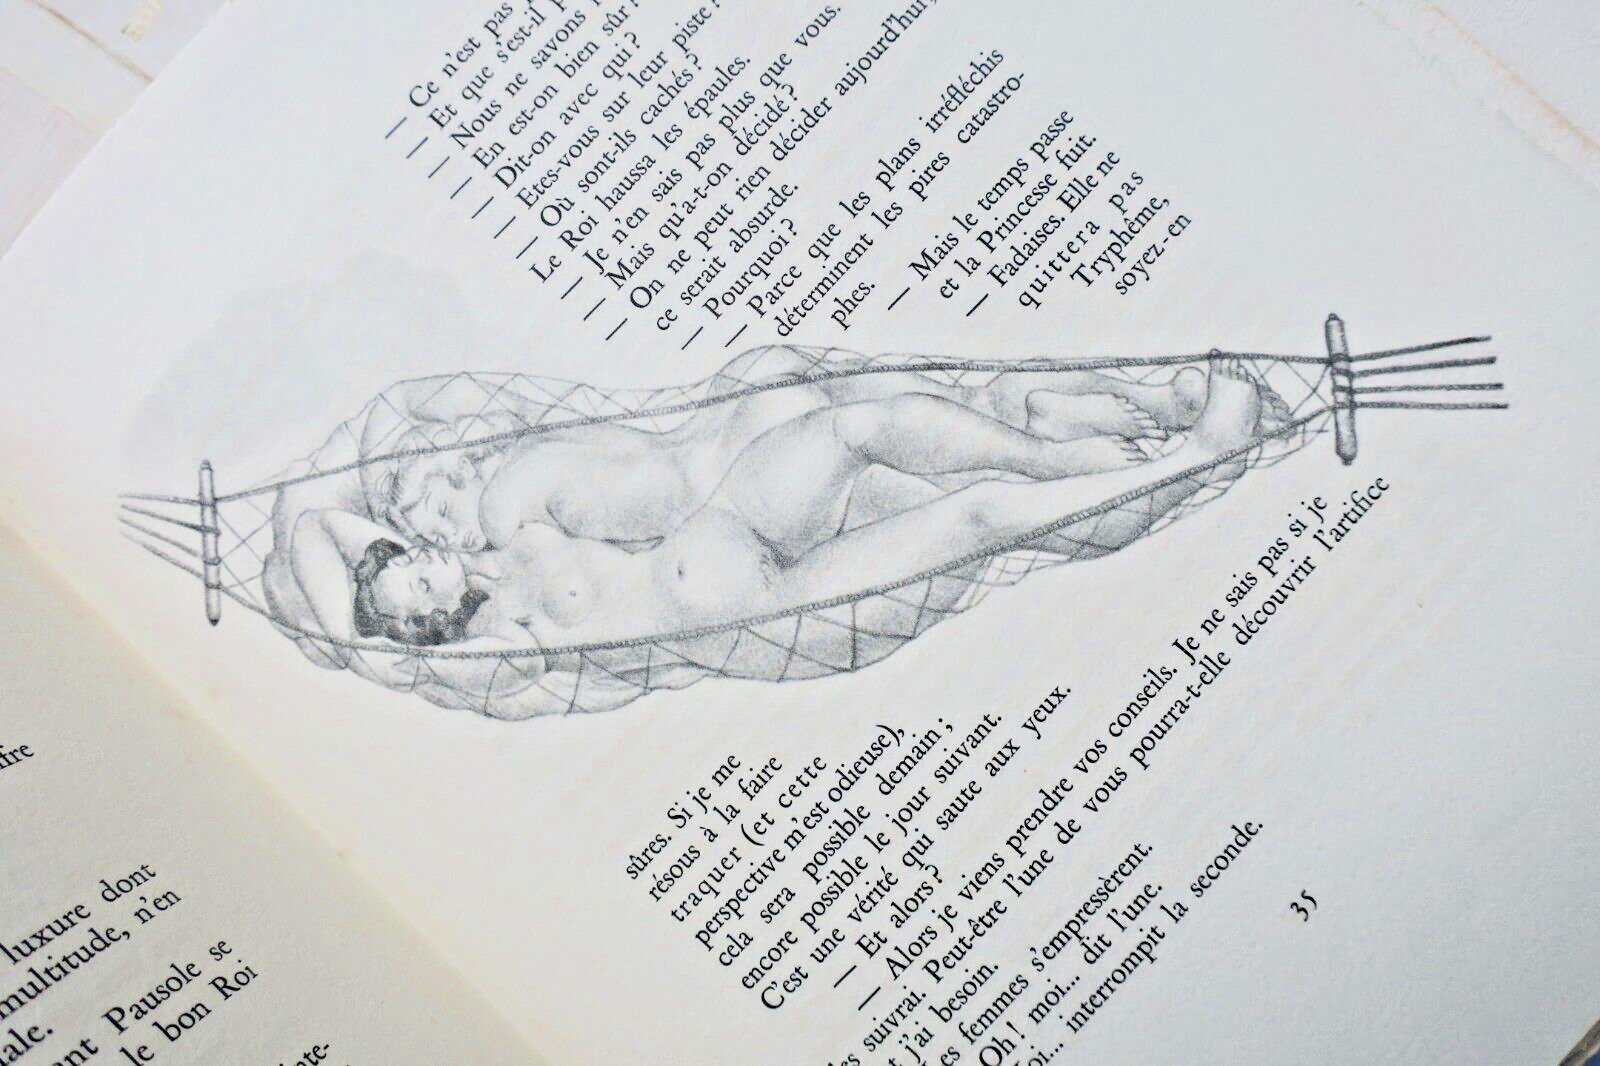 fre
luxure dont
multitude, n'en
ale.
ant Pausole se
le bon Roi
inte-
— Ce n'est pas
— Et que s'est-il
— Nous ne savons
— En est-on bien sûr?
— Dit-on avec qui?
— Etes-vous sur leur piste?
— Où sont-ils cachés?
Le Roi haussa les épaules.
— Je n'en sais pas plus que vous.
— Mais qu'a-t-on décidé?
— On ne peut rien décider aujourd'hui,
ce serait absurde.
— Pourquoi?
— Parce que les plans irréfléchis
déterminent les pires catastro-
phes.
— Mais le temps passe
et la Princesse fuit.
— Fadaises. Elle ne
quittera pas
Tryphême,
soyez-en
sûres. Si je me
résous à la faire
traquer (et cette
perspective m'est odieuse),
cela sera possible demain;
encore possible le jour suivant.
C'est une vérité qui saute aux yeux.
— Et alors?
— Alors je viens prendre vos conseils. Je ne sais pas si je
les suivrai. Peut-être l'une de vous pourra-t-elle découvrir l'artifice
t j'ai besoin.
es femmes s'empressèrent.
Oh! moi... dit l'une.
oi... interrompit la seconde.
35